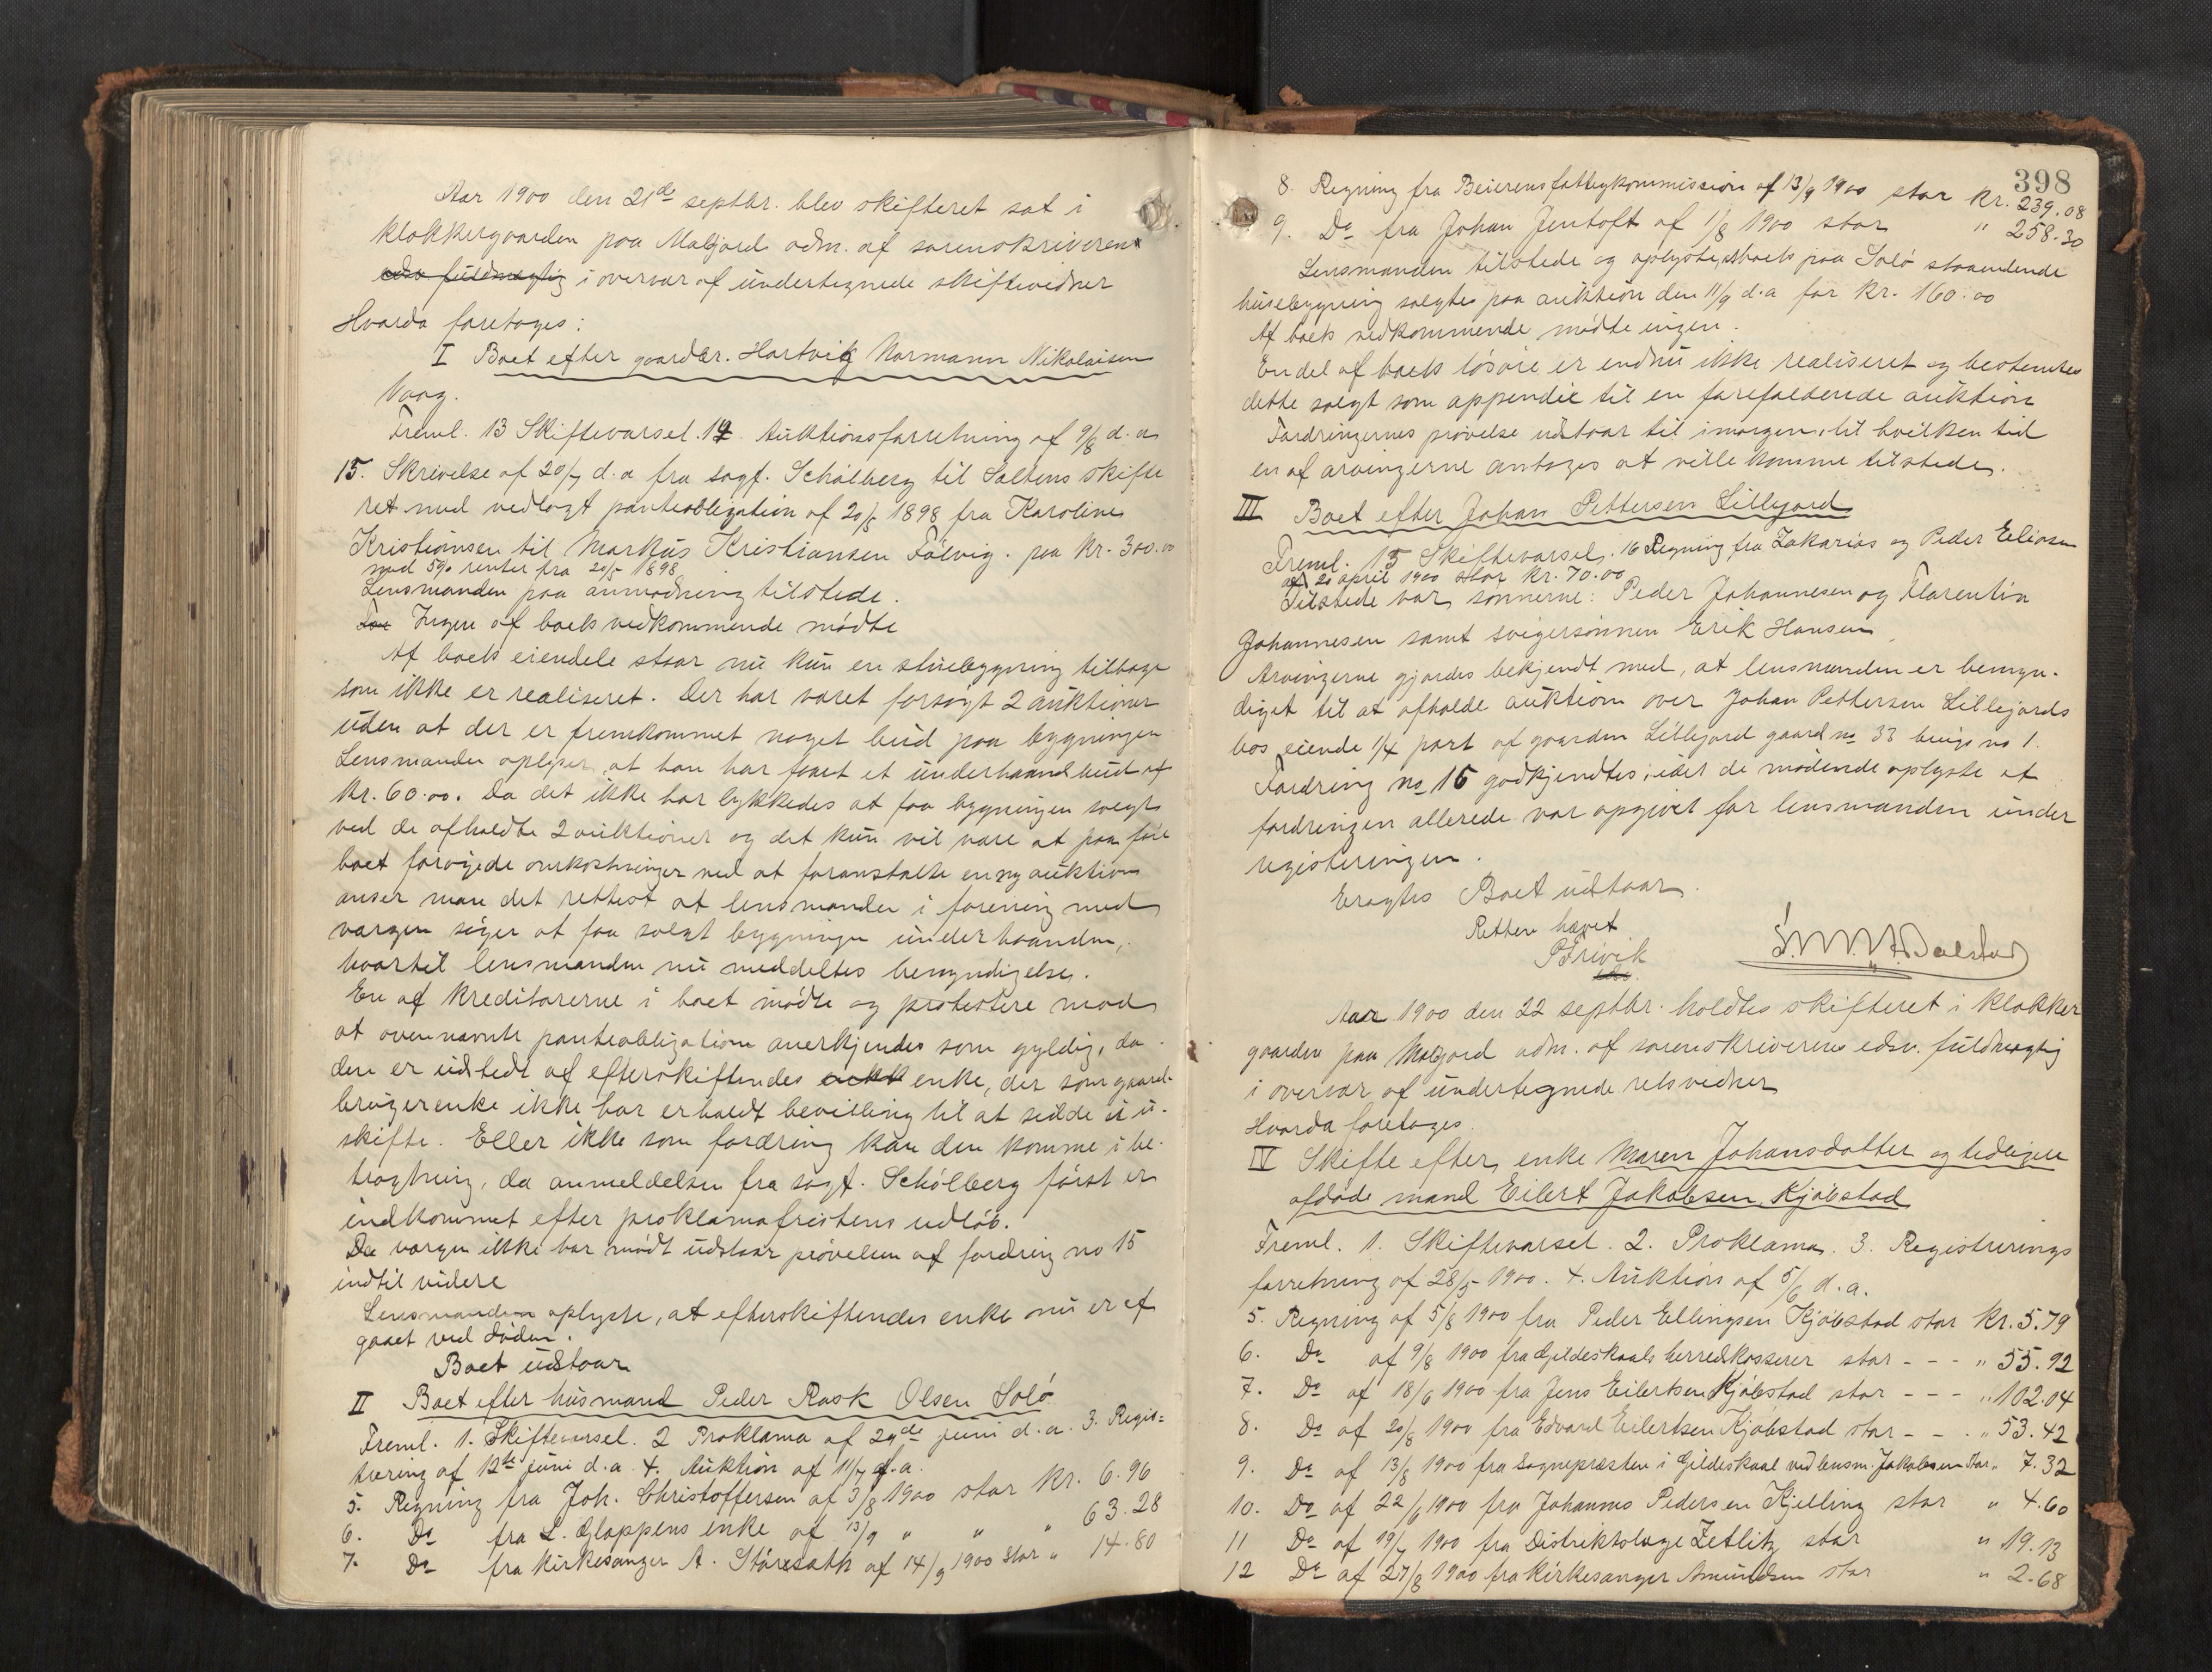 Aar 1900 den 21de septbr. blev skifteret sat i
klokkergaarden paa Molgjord adm. af sorenskriverens
edsv fuldmægtig i overvær af undertegnede skiftevidner
Hvorda foretoges:
I Boet efter gaardbr. Hartvig Normann Nikolaisen
Vaag.
Freml. 13 Skiftevarsel. 14. Auktionsforretning af 9/8 d. a
15. Skrivelse af 20/7 d. a fra sagf. Schölberg til Saltens skifte
ret med vedlagt panteobligation af 20/5 1898 fra Karoline
Kristiansen til Markus Kristiansen Tålvig. paa kr. 300.00
med 5% renter fra 20/5 1898
Lensmanden paa anmodning tilstede.
For Ingen af boets vedkommende mødte
Af boets eiendele staar nu kun en stuebygning tilbage
som ikke er realiseret. Der har været forsøgt 2 auktioner
uden at der er fremkommet noget bud paa bygningen
Lensmanden oplyser, at han har faaet et underhaandsbud af
kr. 60.00. Da det ikke har lykkedes at faa bygningen solgt
ved de afholdte 2 auktioner og det kun vil være at paaføre
boet forøgede omkostninger ved at foranstalte en ny auktion
anser man det rettest at lensmanden i forening med
værgen søger at faa solgt bygningen underhaanden,
hvortil lensmanden nu meddeltes bemyndigelse.
En af kreditorerne i boet mødte og protestere mod
at ovennævnte panteobligation anerkjendes som gyldig, da
den er udstedt af efterskiftendes enke, der som gaard-
brugerenke ikke har erholdt bevilling til at sidde i u-
skifte. Eller ikke som fordring kan den komme i be-
tragtning, da anmeldelsen fra sagf. Schölberg først er
indkommet efter proklamafristens udløb.
Da værgen ikke har mødt udstaar prøvelsen af fordring no 15
indtil videre
Lensmanden oplyste, at efterskiftendes enke nu er af
gaaet ved døden.
Boet udstaar
II Boet efter husmand Peder Rask Olsen Solø
Freml. 1. Skiftevarsel. 2 Proklama af 29de juni d. a. 3. Regis=
trering af 12te juni d. a 4. Auktion af 11/9 d. a.
5. Regning fra Joh. Christoffersen af 3/8 1900 stor kr. 6.96
6. Do fra L. Glappens enke af 13/9 " " " 63.28
7. Do fra kirkesanger A. Støresæth af 14/9 1900 stor " 14.80
398
8. Regning fra Beierens fattigkommission af 13/9 1900 stor kr. 239.08
9. Do fra Johan Jentoft af 1/8 1900 stor " 258.30
Lensmanden tilstede og oplyste, at boets paa Solø staaendende
husebygning solgtes paa auktion den 11/9 d. a for kr. 160.00
Af boets vedkommende mødte ingen.
En del af boets løsøre er endnu ikke realiseret og bestemtes
dette solgt som appendix til en forefaldende auktion
Fordringernes prøvelse udstaar til imorgen, til hvilken tid
en af arvingerne antages at ville komme tilstede.
III Boet efter Johan Pettersen Lillegjord
Freml. 15 Skiftevarsel. 16 Regning fra Zakarias og Peder Eliasen
af 20 april 1900 stor kr. 70.00
Tilstede var sønnerne: Peder Johannesen og Florentin
Johannesen samt svigersønnen Erik Hansen.
Arvingerne gjordes bekjendt med, at lensmanden er bemyn-
diget til at afholde auktion over Johan Pettersen Lillejords
bos eiende 1/4 part af gaarden Lillejord gaard no 33 brugs no 1.
Fordring no 16 godkjendtes, idet de mødende oplyste at
fordringen allerede var opgivet for lensmanden under
registeringen.
Eragtes Boet udstaar.
Retten hævet
Aar 1900 den 22 septbr. holdtes skifteret i klokker
gaarden paa Molgjord adm. af sorenskriverens edsv. fuldmægtig
i overvær af undertegnede retsvidner
Hvorda foretoges.
IV Skifte efter enke Maren Johansdatter og tidligere
afdøde mand Eilert Jakobsen Kjøbstad
Freml. 1. Skiftevarsel. 2. Proklama. 3. Registrerings
forretning af 28/5 1900. 4. Auktion af 5/6 d. a.
5. Regning af 5/8 1900 fra Peder Ellingsen Kjøbstad stor kr. 5.79
6. Do af 9/8 1900 fra Gildeskaals herredskasserer stor - - - " 55.92
7. Do af 18/6 1900 fra Jens Eilertsen Kjøbstad stor - - - " 102.04
8. Do af 20/8 1900 fra Edvard Eilertsen Kjøbstad stor - - . " 53.42
9. Do af 13/8 1900 fra Sognepræsten i Gildeskaal ved lensm. Jakobsen stor " 7.32
10. Do af 22/6 1900 fra Johannes Pedersen Kjelling stor " 4.60
11 Do af 19/7 1900 fra Distriktslæge Zetlitz stor " 19.13
12 Do af 27/8 1900 fra kirkesanger Amundsen stor " 2.68